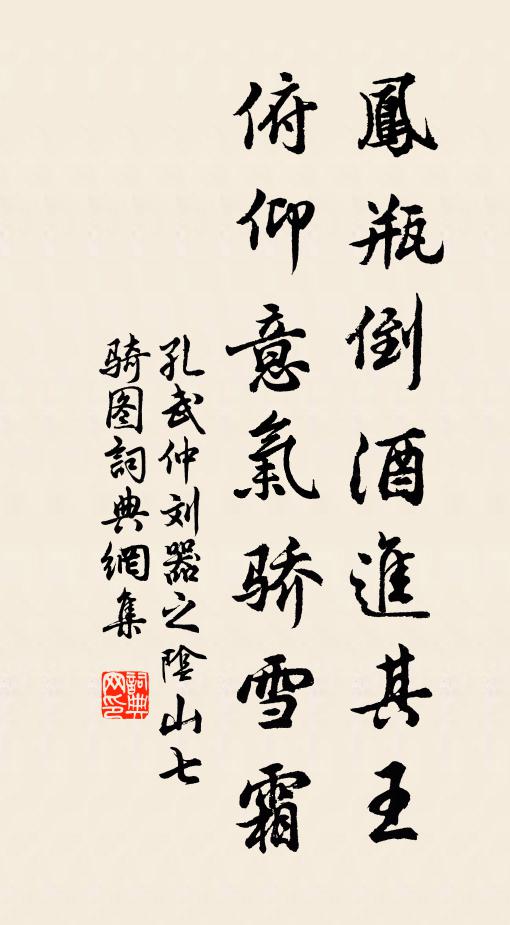 鳳瓶倒酒進其王
俯仰意氣骄雪霜
孔武仲刘器之陰山七
骑图詞典網集
詞典
网印